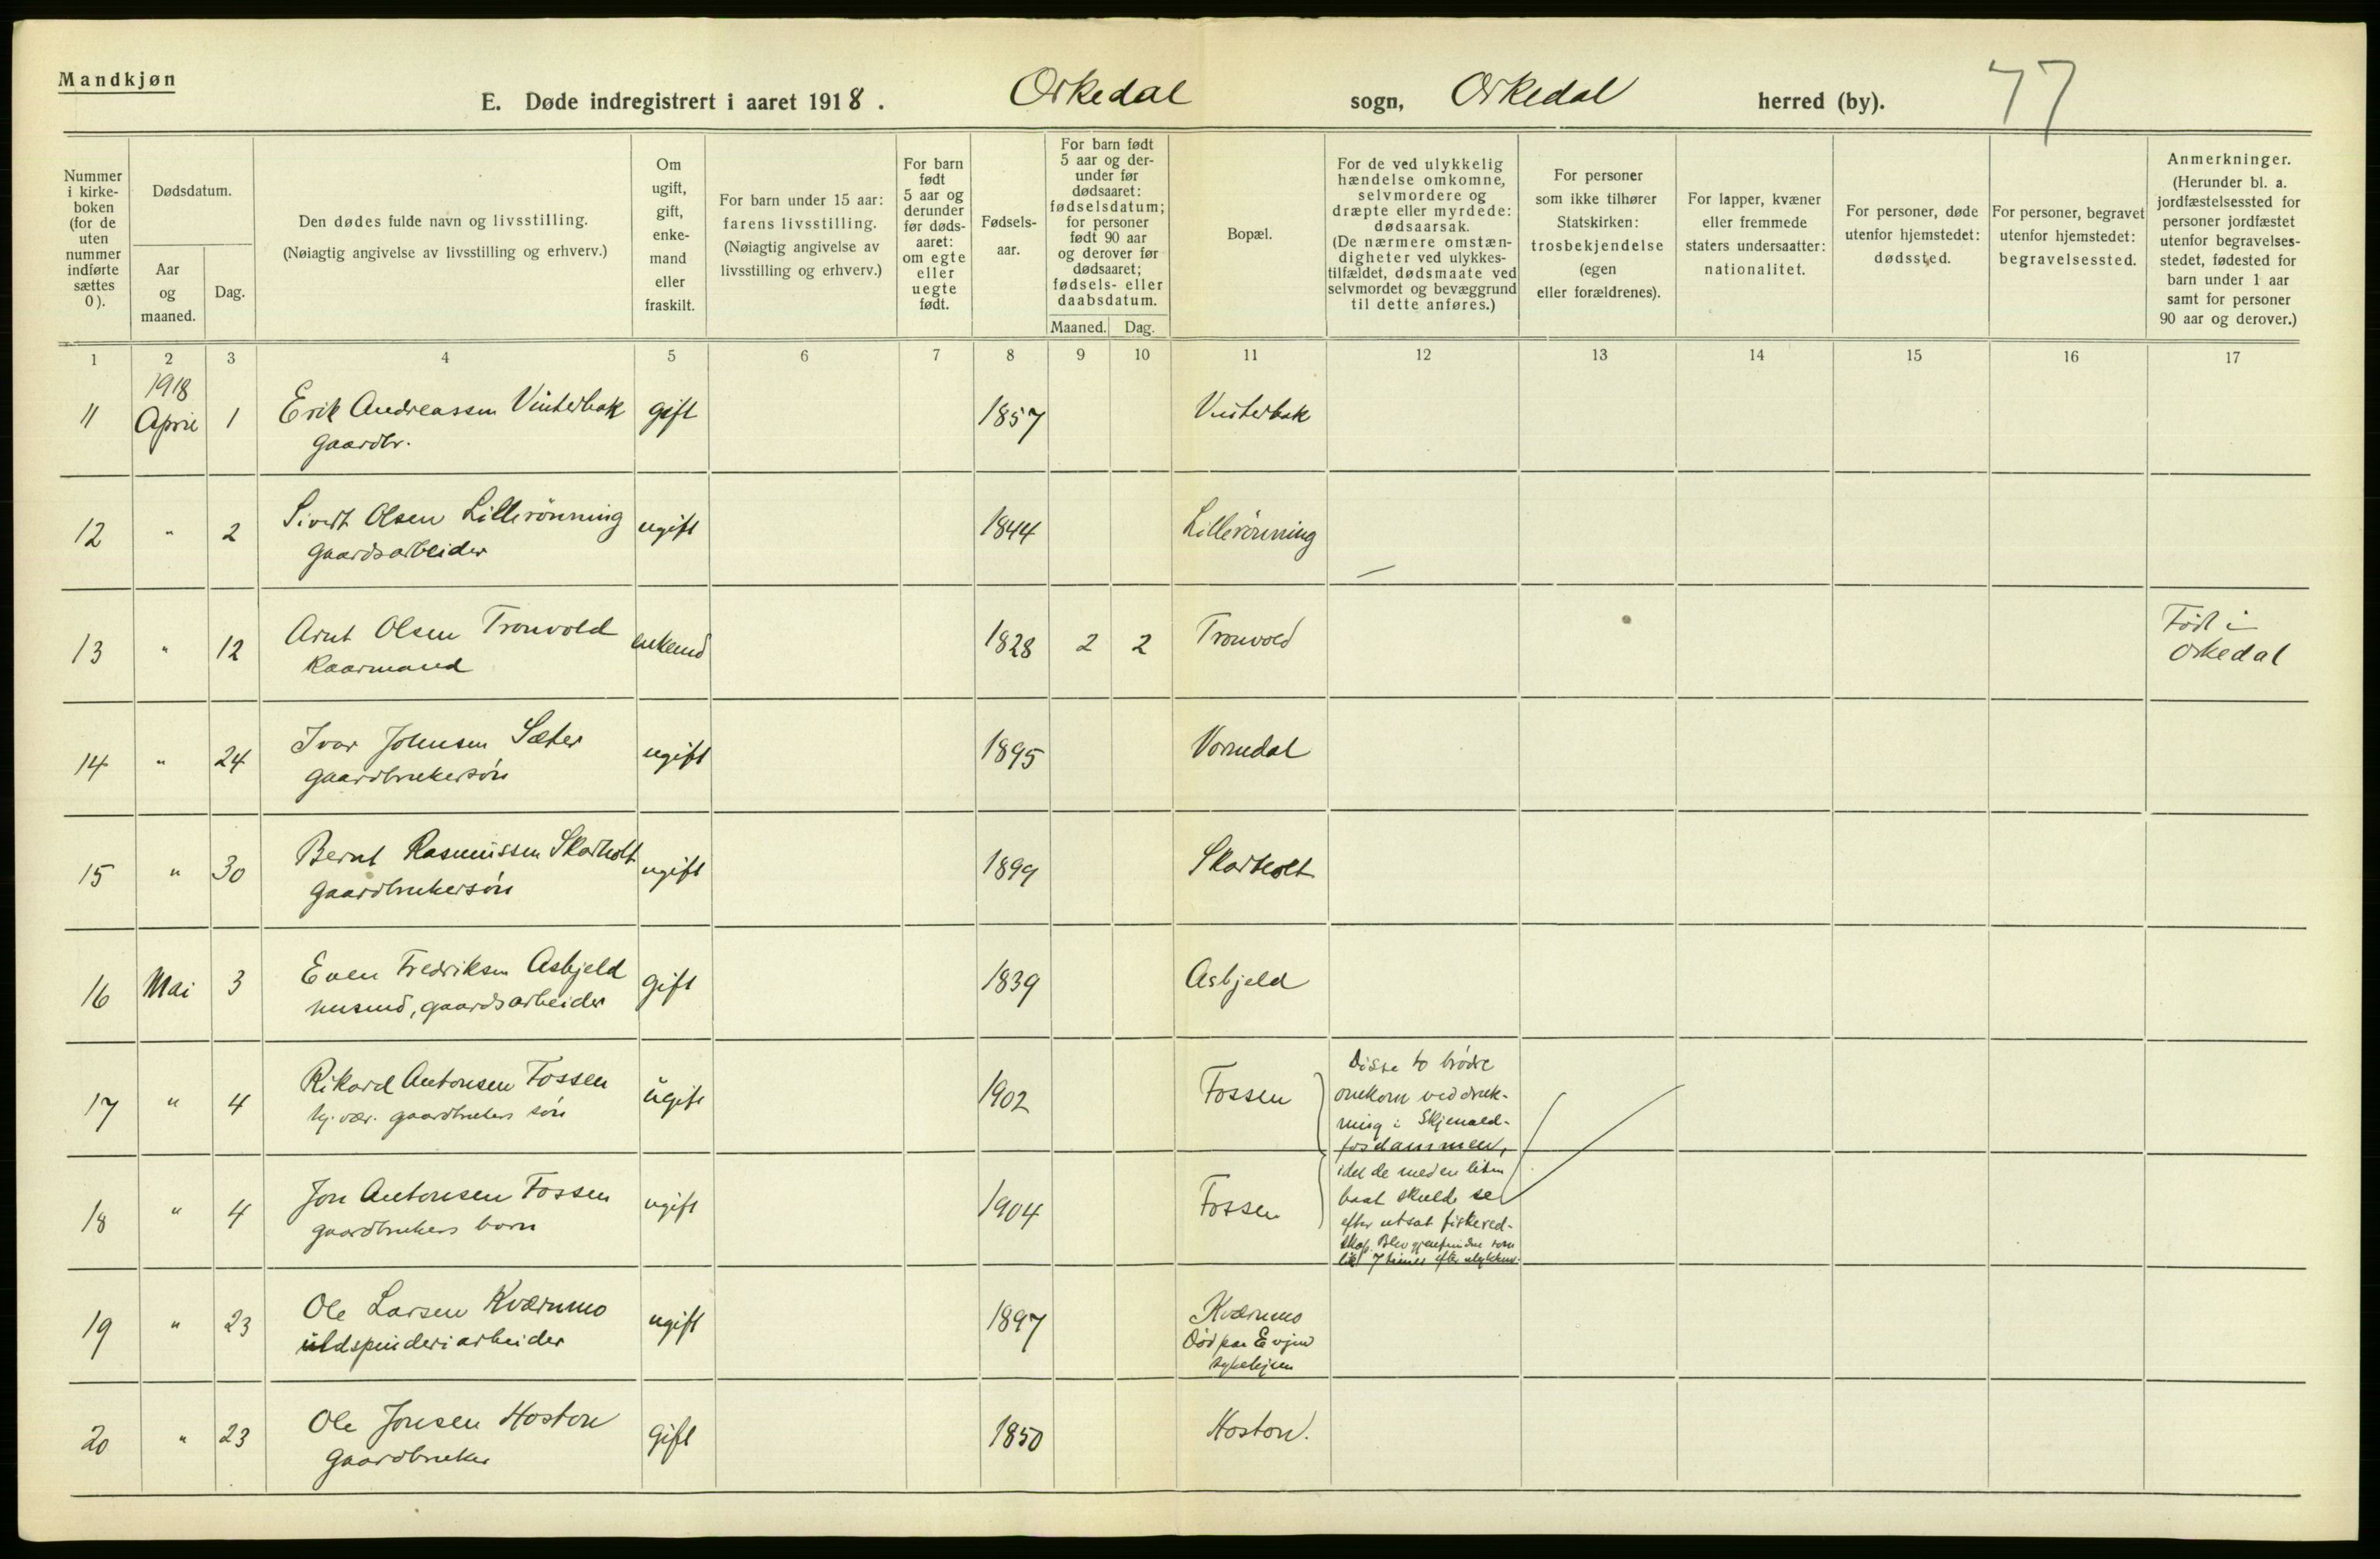 Mandkjøn
E. Døde indregistrert i aaret 1918. Orkedal sogn, Orkedal herred (by). 77
Nummer
i kirke-
boken
(for de
uten
nummer
indførte
sættes
0).
Dødsdatum.
Aar
og
maaned.
Dag.
Den dødes fulde navn og livsstilling.
(Nøiagtig angivelse av livsstilling og erhverv.)
Om
ugift,
gift,
enke-
mand
eller
fraskilt.
For barn under 15 aar:
farens livsstilling.
(Nøiagtig angivelse av
livsstilling og erhverv.)
For barn
født
5 aar og
derunder
før døds-
aaret:
om egte
eller
uegte
født.
Fødsels-
aar.
For barn født
5 aar og der-
under før
dødsaaret:
fødselsdatum;
for personer
født 90 aar
og derover før
dødsaaret;
fødsels- eller
daabsdatum.
Maaned. Dag.
Bopæl.
For de ved ulykkelig
hændelse omkomne,
selvmordere og
dræpte eller myrdede:
dødsaarsak.
(De nærmere omstæn-
digheter ved ulykkes-
tilfældet, dødsmaate ved
selvmordet og bevæggrund
til dette anføres.)
For personer
som ikke tilhører
Statskirken:
trosbekjendelse
(egen
eller forældrenes).
For lapper, kvæner
eller fremmede
staters undersaatter:
nationalitet.
For personer, døde
utenfor hjemstedet:
dødssted.
For personer, begravet
utenfor hjemstedet:
begravelsessted.
Anmerkninger.
(Herunder bl. a.
jordfæstelsessted for
personer jordfæstet
utenfor begravelses-
stedet, fødested for
barn under 1 aar
samt for personer
90 aar og derover.)
1 2 3 4 5 6 7 8 9 10 11 12 13 14 15 16 17
1918
11 April 1 Erik Andreassen Vinterbak gift 1857 Vinterbak
gaardbr.
12 " 2 Sivert Olsen Lillerönning ugift 1844 Lillerönning
gaardsarbeider
13 " 12 Arnt Olsen Tronvold enkemd 1828 2 2 Tronvold Född i
kaarmand Orkedal
14 " 24 Ivar Johnsen Sæter ugift 1895 Vormdal
gaardbrukersön
15 " 30 Bernt Rasmussen Skarholt ugift 1899 Skarholt
gaardbrukersön
16 Mai 3 Even Fredriksen Asbjeld gift 1839 Asbjeld
husmd, gaardsarbeider
17 " 4 Rikard Antonsen Fossen ugift 1902 Fossen
hj. vær. gaardbrukers sön
Disse to brödre
omkom ved druk-
ning i Skjenald-
fosdammen,
18 " 4 Jon Antonsen Fossen ugift 1904 Fossen
gaardbrukers barn
idet de med en liten
baat skulde se
efter utsat fiskered-
skap. Blev gjenfundne som
lik 7 timer efter ulykken.
19 " 23 Ole Larsen Kværnmo ugift 1897 Kværnmo
uldspinderiarbeider
Död paa Evjen
sykehjem
20 " 23 Ole Jonsen Hoston gift 1850 Hoston.
gaardbruker